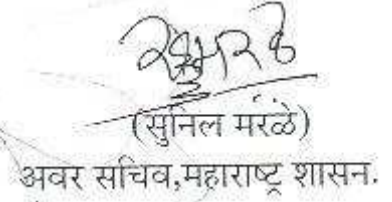 (सुनिल मरळे)
अवर सचिव,महाराष्ट्र शासन.